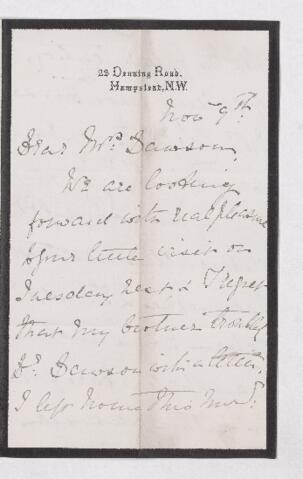 22 Denning Road.
Hampstead, N.W.
Nov 9th
Dear Mrs Dawson,
We are looking
forward with real pleasure
to your little visit on
Tuesday next, & I regret
that my brother troubled
Dr Dawson with a letter.
I left home this